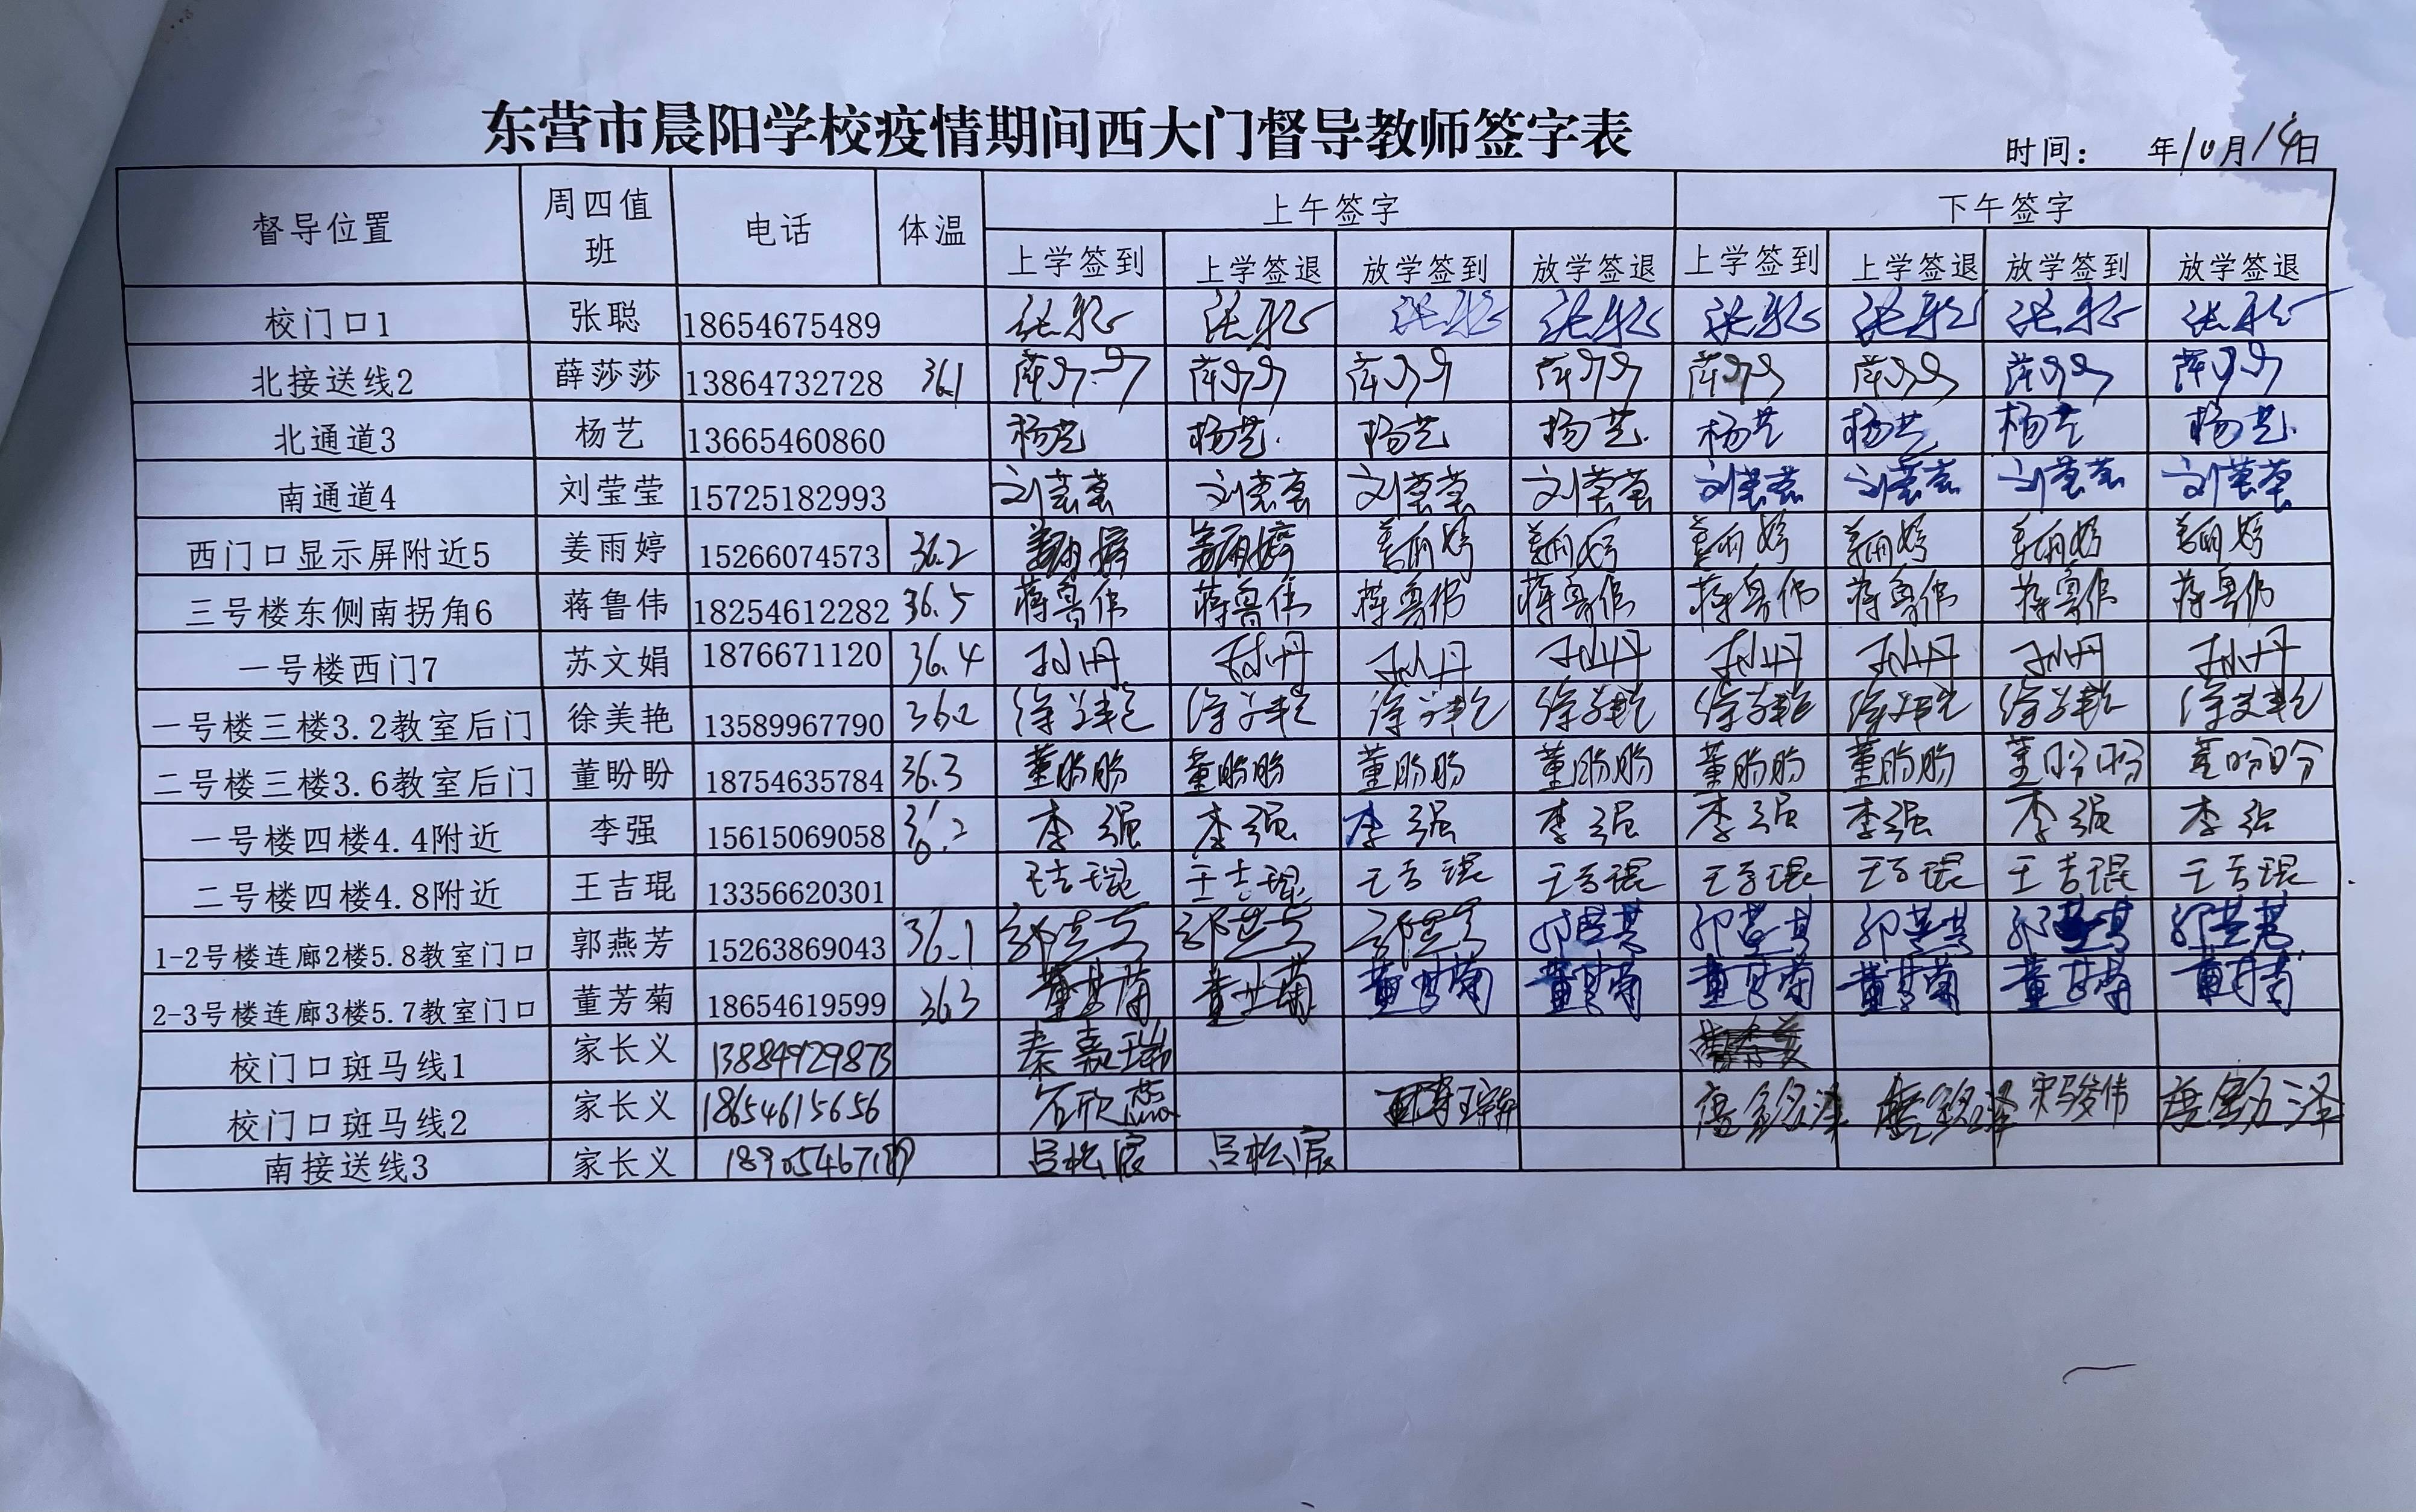 东营市晨阳学校疫情期间西大门督导教师签字表
时间： 年10月14日
督导位置 周四值班 电话 体温 上午签字 下午签字
上学签到 上学签退 放学签到 放学签退 上学签到 上学签退 放学签到 放学签退
校门口1 张聪 18654675489 张聪 张聪 张聪 张聪 张聪 张聪 张聪 张聪
北接送线2 薛莎莎 13864732728 36.1 薛莎莎 薛莎莎 薛莎莎 薛莎莎 薛莎莎 薛莎莎 薛莎莎 薛莎莎
北通道3 杨艺 13665460860 杨艺 杨艺 杨艺 杨艺 杨艺 杨艺 杨艺 杨艺
南通道4 刘莹莹 15725182993 刘莹莹 刘莹莹 刘莹莹 刘莹莹 刘莹莹 刘莹莹 刘莹莹 刘莹莹
西门口显示屏附近5 姜雨婷 15266074573 36.2 姜雨婷 姜雨婷 姜雨婷 姜雨婷 姜雨婷 姜雨婷 姜雨婷 姜雨婷
三号楼东侧南拐角6 蒋鲁伟 18254612282 36.5 蒋鲁伟 蒋鲁伟 蒋鲁伟 蒋鲁伟 蒋鲁伟 蒋鲁伟 蒋鲁伟 蒋鲁伟
一号楼西门7 苏文娟 1876671120 36.4 孙丹 孙丹 孙丹 孙丹 孙丹 孙丹 孙丹 孙丹
一号楼三楼3.2教室后门 徐美艳 13589967790 36.2 徐美艳 徐美艳 徐美艳 徐美艳 徐美艳 徐美艳 徐美艳 徐美艳
二号楼三楼3.6教室后门 董盼盼 18754635784 36.3 董盼盼 董盼盼 董盼盼 董盼盼 董盼盼 董盼盼 董盼盼 董盼盼
一号楼四楼4.4附近 李强 15615069058 36.2 李强 李强 李强 李强 李强 李强 李强 李强
二号楼四楼4.8附近 王吉琨 13356620301 王吉琨 王吉琨 王吉琨 王吉琨 王吉琨 王吉琨 王吉琨 王吉琨
1-2号楼连廊2楼5.8教室门口 郭燕芳 15263869043 36.1 郭燕芳 郭燕芳 郭燕芳 郭燕芳 郭燕芳 郭燕芳 郭燕芳 郭燕芳
2-3号楼连廊3楼5.7教室门口 董芳菊 18654619599 36.3 董芳菊 董芳菊 董芳菊 董芳菊 董芳菊 董芳菊 董芳菊 董芳菊
校门口斑马线1 家长义 13884929873 秦嘉瑞
校门口斑马线2 家长义 18654615656 石欣蕊 宋骏伟
南接送线3 家长义 吕松宸 吕松宸